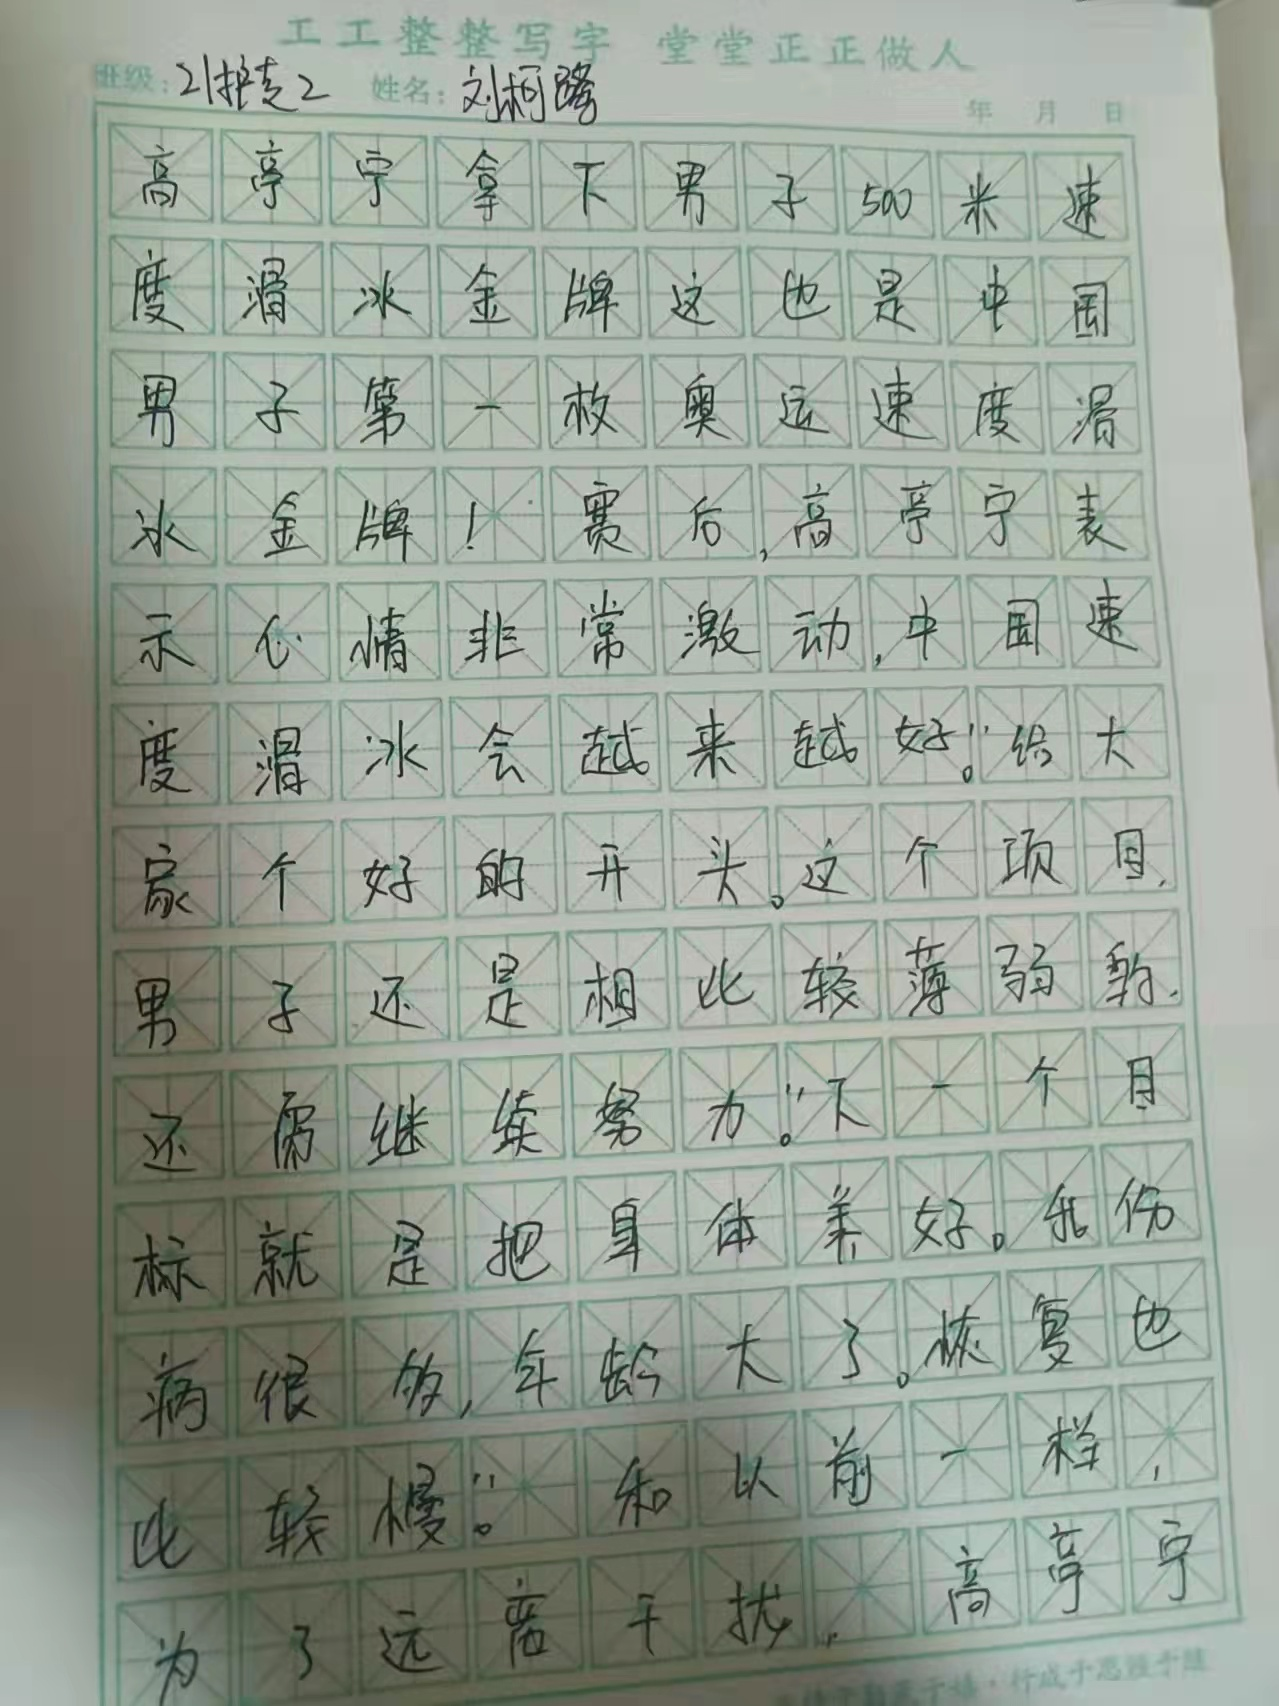 工工整整写字 堂堂正正做人
班级：21护走2 姓名：刘柯隆 年 月 日
高亭宁拿下男子500米速
度滑冰金牌这也是中国
男子第一枚奥运速度滑
冰金牌！赛后，高亭宁表
示心情非常激动，中国速
度滑冰会越来越好。”给大
家个好的开头。这个项目，
男子还是相比较薄弱的，
还需继续努力。”下一个目
标就是把身体养好。我伤
病很多，年龄大了。恢复也
比较慢。”和以前一样，
为了远离干扰，高亭宁